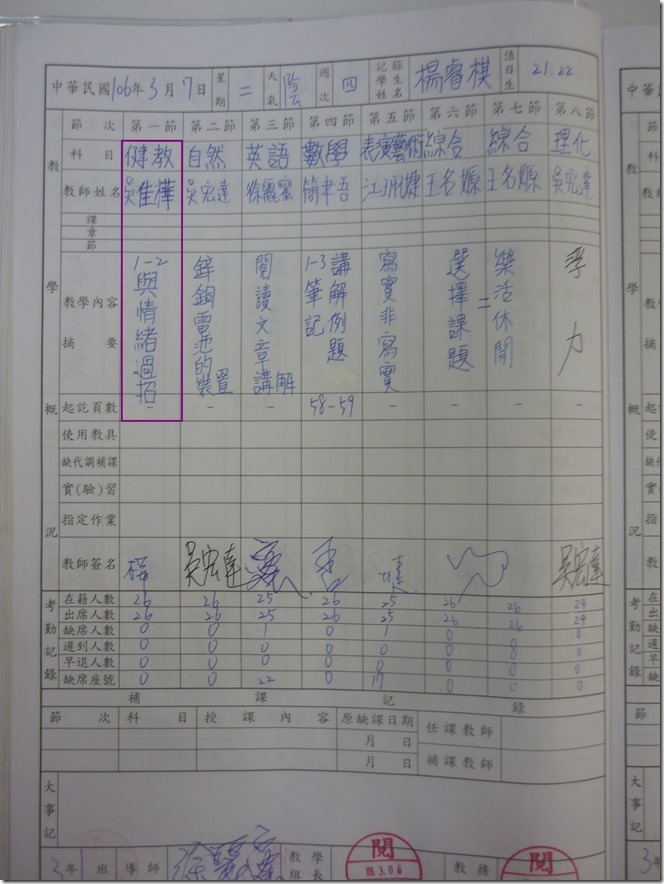 中華民國106年3月7日 星期 二 天氣 陰 週次 四 記錄學生姓名 楊睿棋 值日生 21.22
節次 第一節 第二節 第三節 第四節 第五節 第六節 第七節 第八節
科目 健教 自然 英語 數學 表演藝術 綜合 綜合 理化
教師姓名 吳佳樺 吳宏達 徐麗蜜 簡聿吾 江珮婕 王名嫄 王名嫄 吳宏達
課
章
節
教學概況
教學內容摘要 1-2與情緒過招 鋅銅電池的裝置 閱讀文章講解 1-3講解例題 筆記 寫實非寫實 選擇課題二 樂活休閒
起訖頁數 - - - 58-59 - - - -
使用教具
缺代調補課
實(驗)習
指定作業
教師簽名 吳宏達 吳宏達
考勤記錄
在籍人數 26 26 25 26 25 26 26 24
出席人數 26 26 25 26 25 26 26 24
缺席人數 0 0 1 0 1 0 0 0
遲到人數 0 0 0 0 0 0 0
早退人數 0 0 0 0 0 0 0 0
缺席座號 0 0 22 0 0 0 0
補課記錄
節次 科目 授課內容 原缺課日期 任課教師
月 日
月 日 補課教師
大事記
3年1班 導師 教學組長 閱 教務 閱